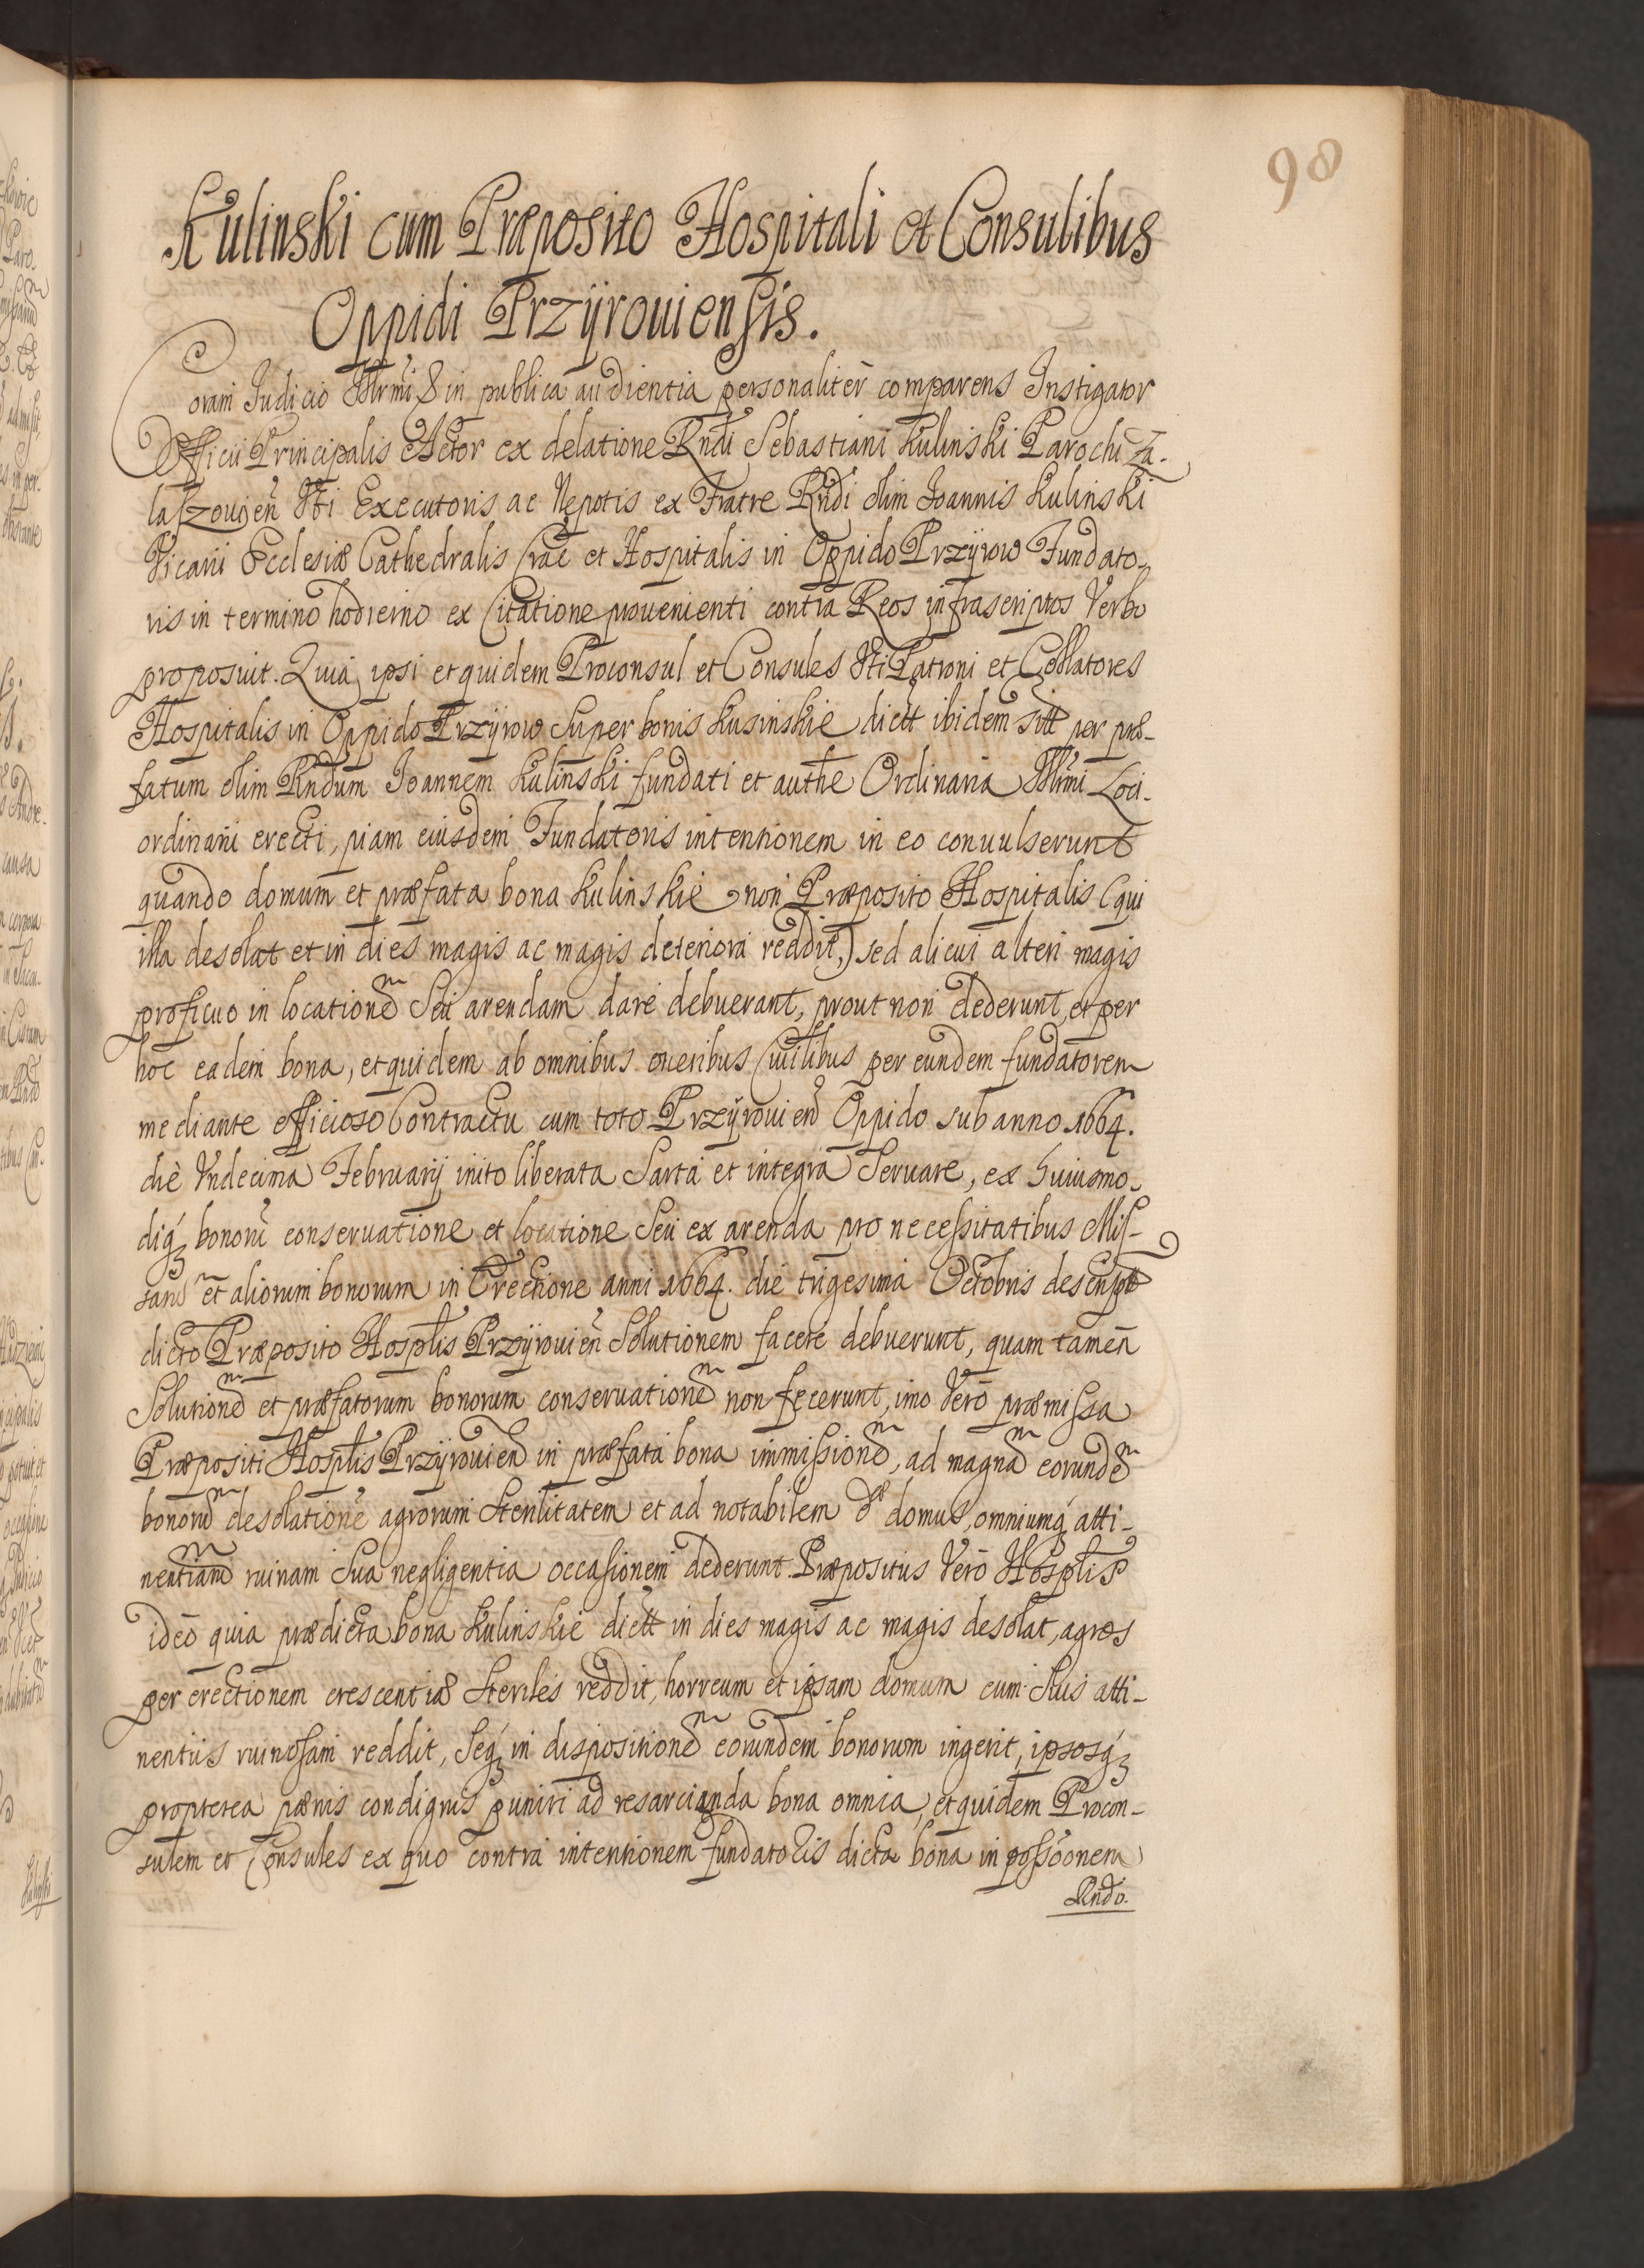 98
Kulinski cum Præposito Hospitali et Consulibus
Oppidi Przÿrouiensis.
Coram Judicio Illrmi & in publica audientia personaliter comparens Instigator
Officii Principalis Actor ex delatione Rndi Sebastiani Kulinski Parochi Za-
laszouien̄ Tti Executoris ac Nepotis ex Fratre Rndi olim Joannis Kulinski
Vicarii Ecclesiæ Cathedralis Crac̄ et Hospitalis in Oppido Przÿrow Fundato-
ris in termino hodierno ex Citatione prouenienti contra Reos infrascriptos Verbo
proposuit. Quia ipsi et quidem Proconsul et Consules Tti Patroni et Collatores
Hospitalis in Oppido Przÿrow Super bonis Kusinskie dictt ibidem sitt per præ-
fatum olim Rndum Joannem Kulinski fundati et authe Ordinaria Illrmi Loci-
ordinarii erecti, piam eiusdem Fundatoris intentionem in eo conuulserunt
quando domum et præfata bona Kulinskie non Præposito Hospitalis (qui
illa desolat et in dies magis ac magis deteriora reddit,) sed alicui alteri magis
proficuo in locationē Seu arendam dare debuerant, prout non dederunt, et per
hoc eadem bona, et quidem ab omnibus oneribus Ciuilibus per eundem fundatorem
mediante officioso Contractu cum toto Przÿrouien̄ Oppido sub anno 1664.
die Vndecima Februarij inito liberata Sarta et integra Seruare, ex huiusmo-
diq́ꝫ bonorū conseruatione et locatione Seu ex arenda pro necessitatibus Mis-
sarū et aliorum bonorum in Erectione anni 1664. die trigesima Octobris descriptt
dicto Præposito Hosplis Przÿrouien̄ Solutionem facere debuerunt, quam tamen
Solutionē et præfatorum bonorum conseruationē non fecerunt, imo Vero præmissa
Præpositi Hosplis Przÿrouien̄ in præfata bona immissionē, ad magnā eorundē
bonorū desolationē agrorum Sterilitatem et ad notabilem domus, omniumq́ atti-
nentiarū ruinam Sua negligentia occasionem dederunt. Præpositus Vero Hosplis
ideo quia prædicta bona Kulinskie dictt in dies magis ac magis desolat, agros
per erectionem crescentiæ Steriles reddit, horreum et ipsam domum cum Suis atti-
nentiis ruinosam reddit, Seq́ꝫ in dispositionē eorundem bonorum ingerit, ipsosq́ꝫ
propterea pænis condignis puniri ad resarcianda bona omnia, et quidem Procon-
sulem et Consules ex quo contra intentionem fundatoris dicta bona in possōonem
Rndo.